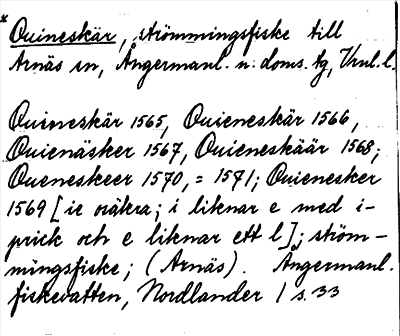 * Quineskär, strömmingsfiske till
Arnäs sn, Ångermanl. n. doms. tg, Vnl. l.
Quineskär 1565, Quieneskär 1566,
Quienäsker 1567, Quieneskäär 1568;
Queneskeer 1570, = 1571; Quienesker
1569 [ie osäkra; i liknar e med i-
prick och e liknar ett l]; ström-
mingsfiske; (Arnäs). Ångermanl.
fiskevatten, Nordlander 1 s. 33